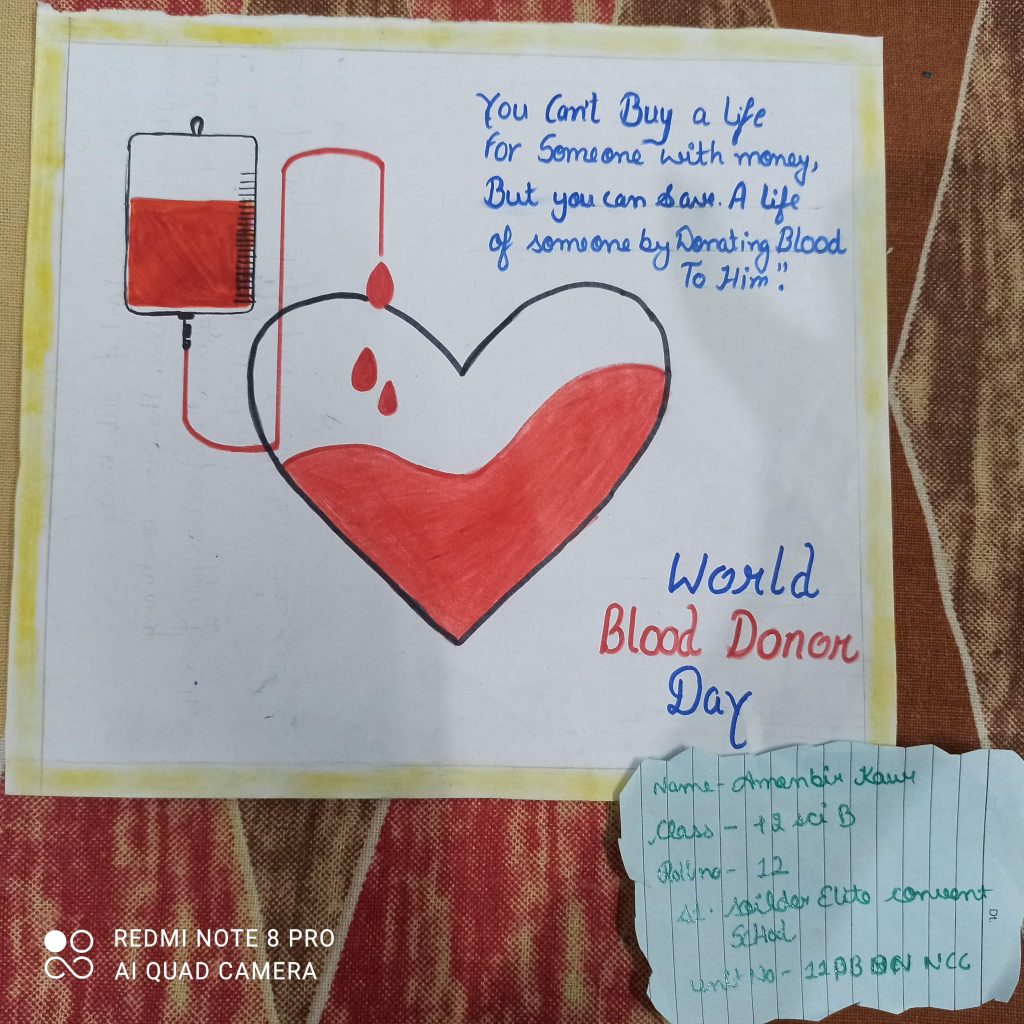 You Can't Buy a life
For Someone with money,
But you can Save. A life
of someone by Donating Blood
To Him"
World
Blood Donor
Day
Name- Amanbir Kaur
Class - +2 sci B
Rollno- 12
St. Soilder Elite convent
School
unit No - 11 PB BN NCC
Dt.
REDMI NOTE 8 PRO
AI QUAD CAMERA